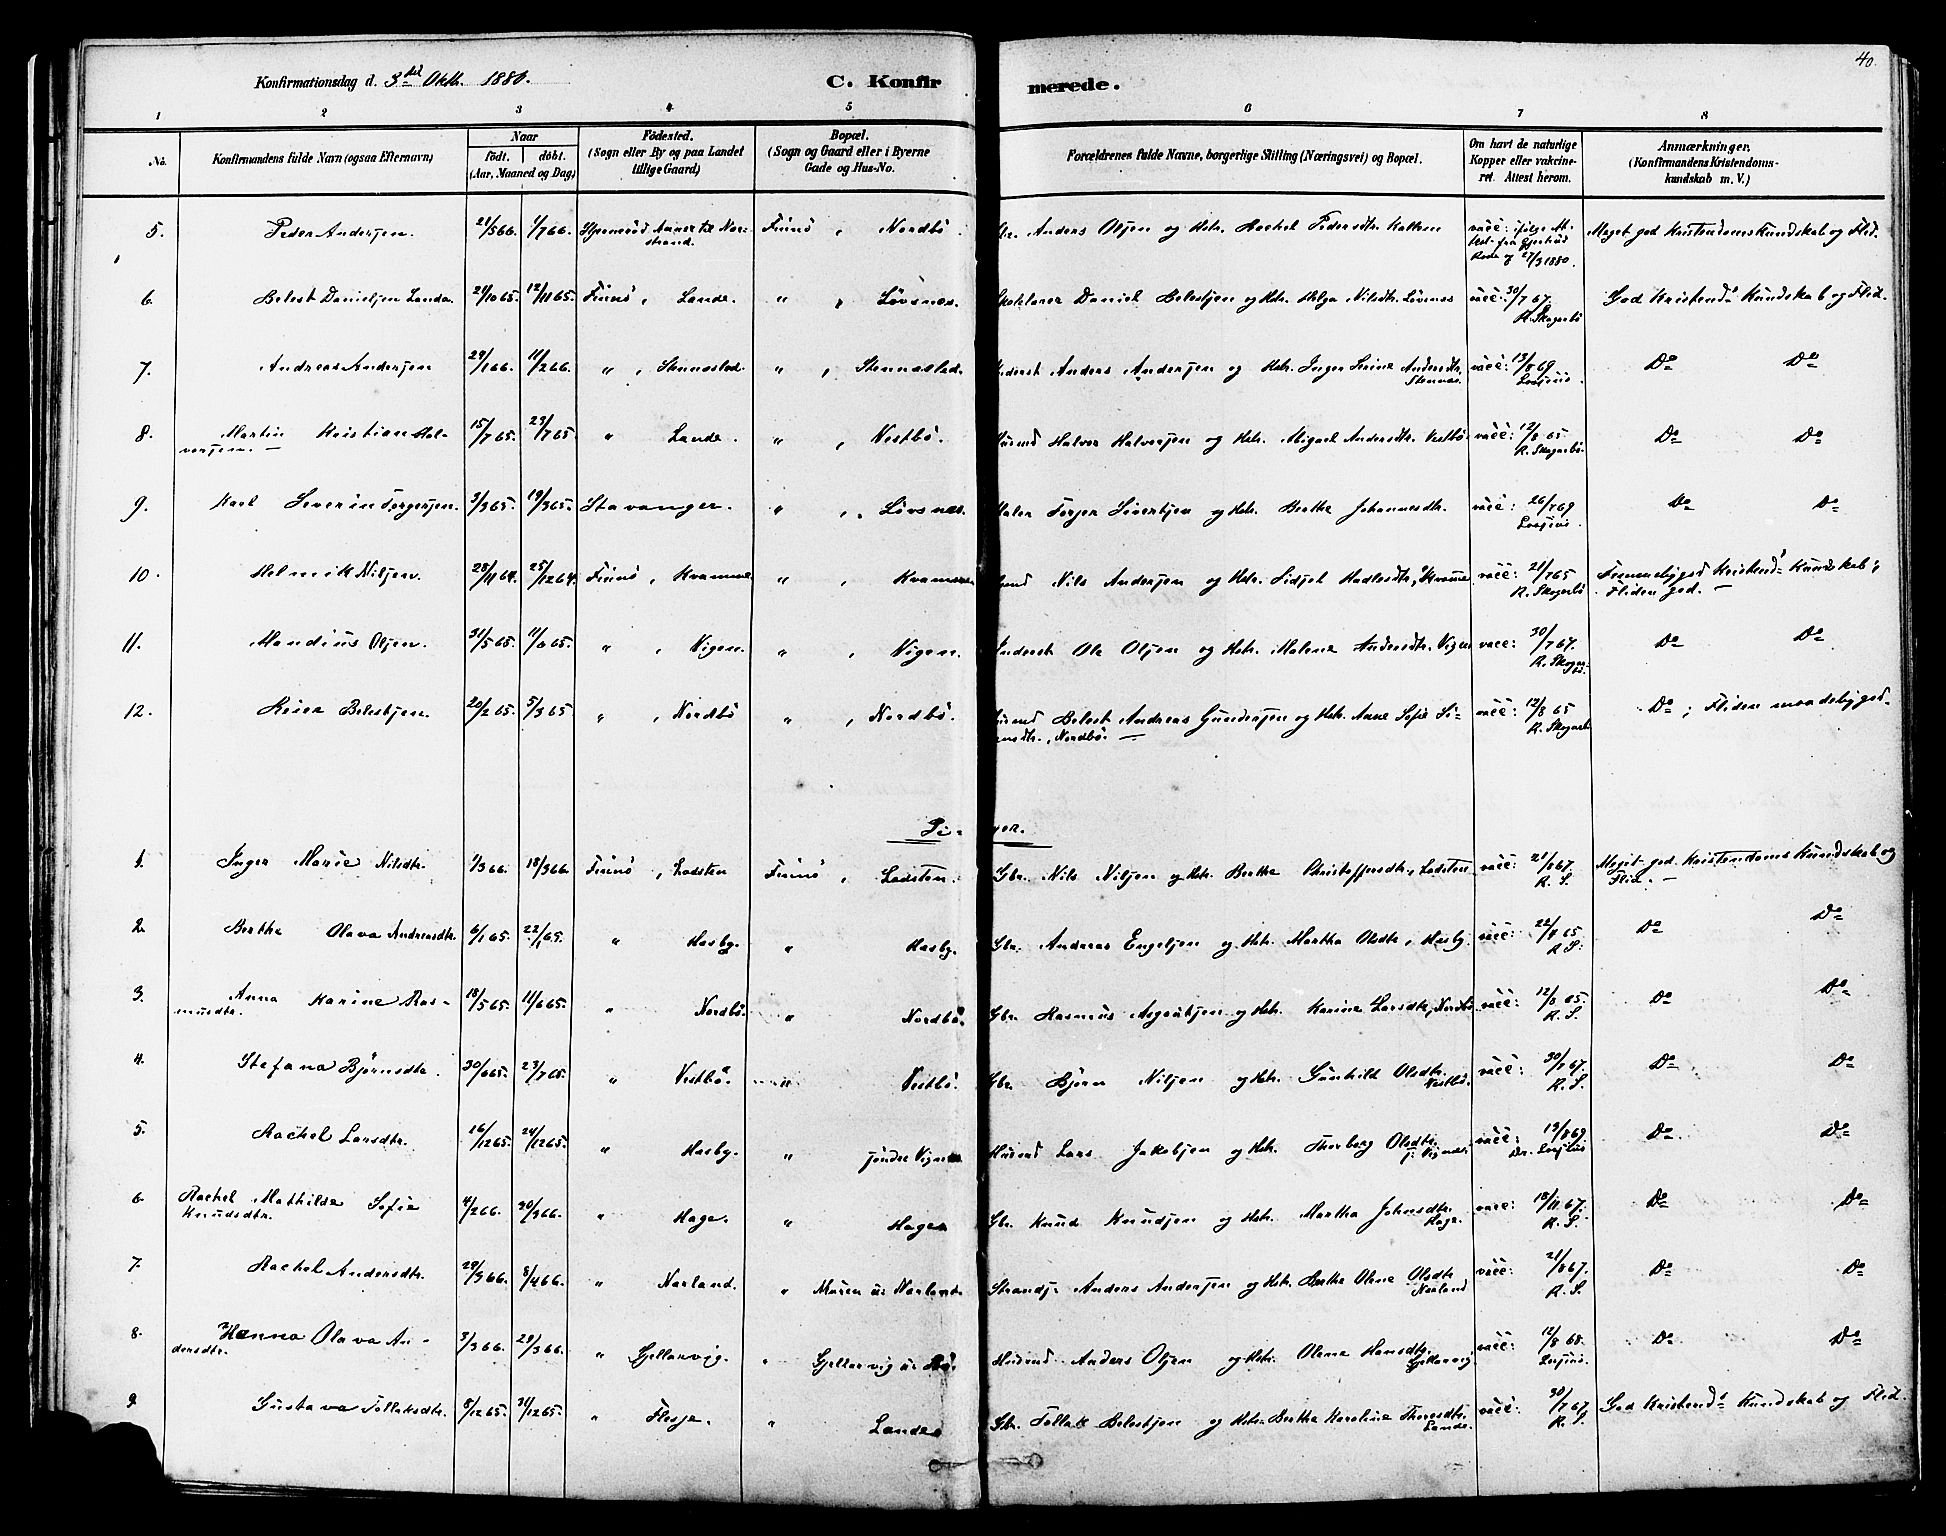 40.
Konfirmationsdag d. 3die Oktb. 1880.
C. Konfirmerede.
1 2 3 4 5 6 7 8
No. Konfirmandens fulde Navn (ogsaa Efternavn) Naar födt. döbt. (Aar, Maaned og Dag) Födested. (Sogn eller By og paa Landet tillige Gaard) Bopæl. (Sogn og Gaard eller i Byerne Gade og Hus-No. Forældrenes fulde Navne, borgerlige Stilling (Næringsvei) og Bopæl. Om havt de naturlige Kopper eller vakcineret. Attest herom. Anmærkninger. (Konfirmandens Kristendomskundskab m. V.)
5. Peder Andersen. 21/5 66. 1/7 66. Finnö, Nordbö. Anders Olsen og Hstr. Rachel Pedersdtr. vacc: 27/3 1880. Meget god Kristendomskundskab og Flid.
6. Belest Danielsen Lande. 21/10 65. 12/11 65. Finnö, Lande. " , Lövsnæs. Daniel Belestsen og Hstr. Helga Nilsdtr. Lövsnæs vacc: 30/7 67. R. Skogerbö God Kristends Kundskab og Flid.
7. Andreas Andersen 29/1 66. 11/2 66. " , Stennæsled. " , Stennæsled. Anders Andersen og Hstr. Inger Serine Andersdtr. Stennæs. vacc: 13/8 69 Do Do
8. Martin Kristian Halvorsen. — 15/7 65. 23/7 65. " Lande. " , Vestbö. Husmd Halvor Halvorsen og Hstr. Andersdtr. Vestbö. vacc: 12/8 65 R. Skogerbö. Do Do
9. Karl Severin Torgersen. 3/3 65. 19/3 65. Stavanger. " , Lövsnæs. Maler Torger Siversen og Hstr. Berthe Johannesdtr. vacc: 26/7 69 Do Do
10. Helmik Nilsen. 28/11 64. 25/12 64. Finnö, Kvamme " , Kvamme Nils Andersen og Hstr. Hadlesdtr, Kvamme vacc: 21/7 65 R. Skogerbö Temmelig god Kristends Kundskab; Fliden god. —
11. Mandius Olsen. 31/5 65. 11/6 65. " , Vigen. " , Vigen. Inderst Ole Olsen og Hstr. Malene Andersdtr. Vigen vacc: 30/7 67. R. Skogerbö. Do Do
12. Reier Belestsen. 20/2 65. 5/3 65 " , Nordbö " , Nordbö. Husmd Belest Andreas Gundersen og Hstr. Anne Sofie Simonsdtr., Nordbö. — vacc: 12/8 65 R. Skogerb Do; Fliden maadelig god.
Piger.
1. Inger Marie Nilsdtr. 1/3 66. 18/3 66. Finnö, Ladsten Finnö, Ladsten. Gbr. Nils Nilsen og Hstr. Berthe Christoffersdtr., Ladsten vacc: 21/8 67. R. S. Meget god Kristendoms Kundskab og Flid. —
2. Berthe Olava Andreasdtr. 6/1 65. 22/1 65. " Hasby. " Hasby. Gbr. Andreas Engelsen og Hstr. Martha Olsdtr., Hasby. vacc: 22/8 65 R. S. Do Do
3. Anna Karine Rasmusdtr. 18/5 65. 11/6 65. " Nordbö. " Nordbö. Gbr. Rasmus og Hstr. Karine Larsdtr, Nordbö vacc: 12/8 65. R. S. Do Do
4. Stefana Björnsdtr. 30/6 65. 23/7 65. " Vestbö. " Vestbö. Gbr. Björn Nilsen og Hstr. Gunhild Olsdtr. Vestbö. vacc: 30/7 67. R. S. Do Do
5. Rachel Larsdtr. 16/12 65. 24/12 65. " Hasby. " söndre Vignes Husmd Lars Jakobsen og Hstr. Thorborg Olsdtr. s. Vignes. vacc: 13/8 69. Dr. Do Do
6. Rachel Mathilde Sofie Knudsdtr. 4/2 66. 20/3 66. " Hage. " Hagen Gbr. Knud Knudsen og Hstr. Martha Johnsdtr. Hage. vacc: 18/11 67. R. S. Do Do
7. Rachel Andersdtr. 29/3 66. 8/4 66. " Narland. " Muren u. Narland. Strands. Anders Andersen og Hstr. Berthe Olene Olsdtr. Narland vacc: 21/8 67. R. S. Do Do
8. Hanna Olava Andersdtr. 3/3 66. 29/3 66. " Gjellarvig. " Gjellarvig u. Husmd Anders Olsen og Hstr. Olene Hansdtr. Gjellarvig vacc: 12/8 68. Do Do
9. Gustava Tollaksdtr. 8/12 65. 31/12 65. " Flesje. " Lande Gbr. Tollak Belestsen og Hstr. Berthe Karoline Thoresdtr. Lande. vacc: 30/7 67. R. S. God Kristends Kundskab og Flid.